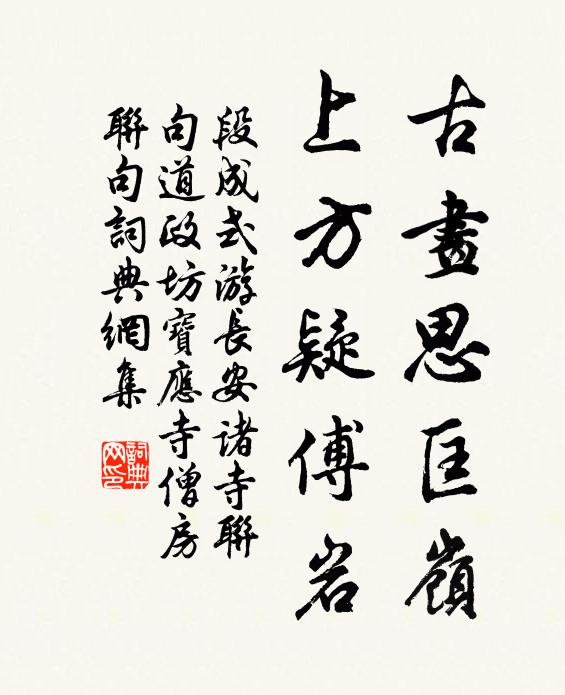 古畫思匡嶺
上方疑傅岩
段成式游長安諸寺聯
句道政坊寶應寺僧房
聯句詞典網集
詞典网印